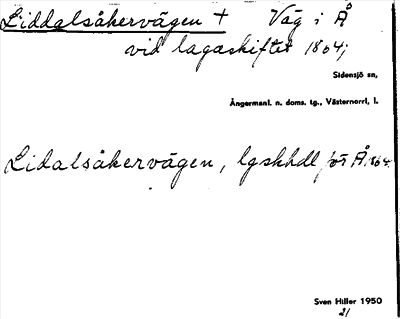 Liddalsåkervägen + Väg i Å
vid lagaskiftet 1804;
Sidensjö sn,
Ångermanl. n. doms. tg., Västernorrl. l.
Lidalsåkervägen, lgskhdl för Å 1804.
Sven Hiller 1950
21